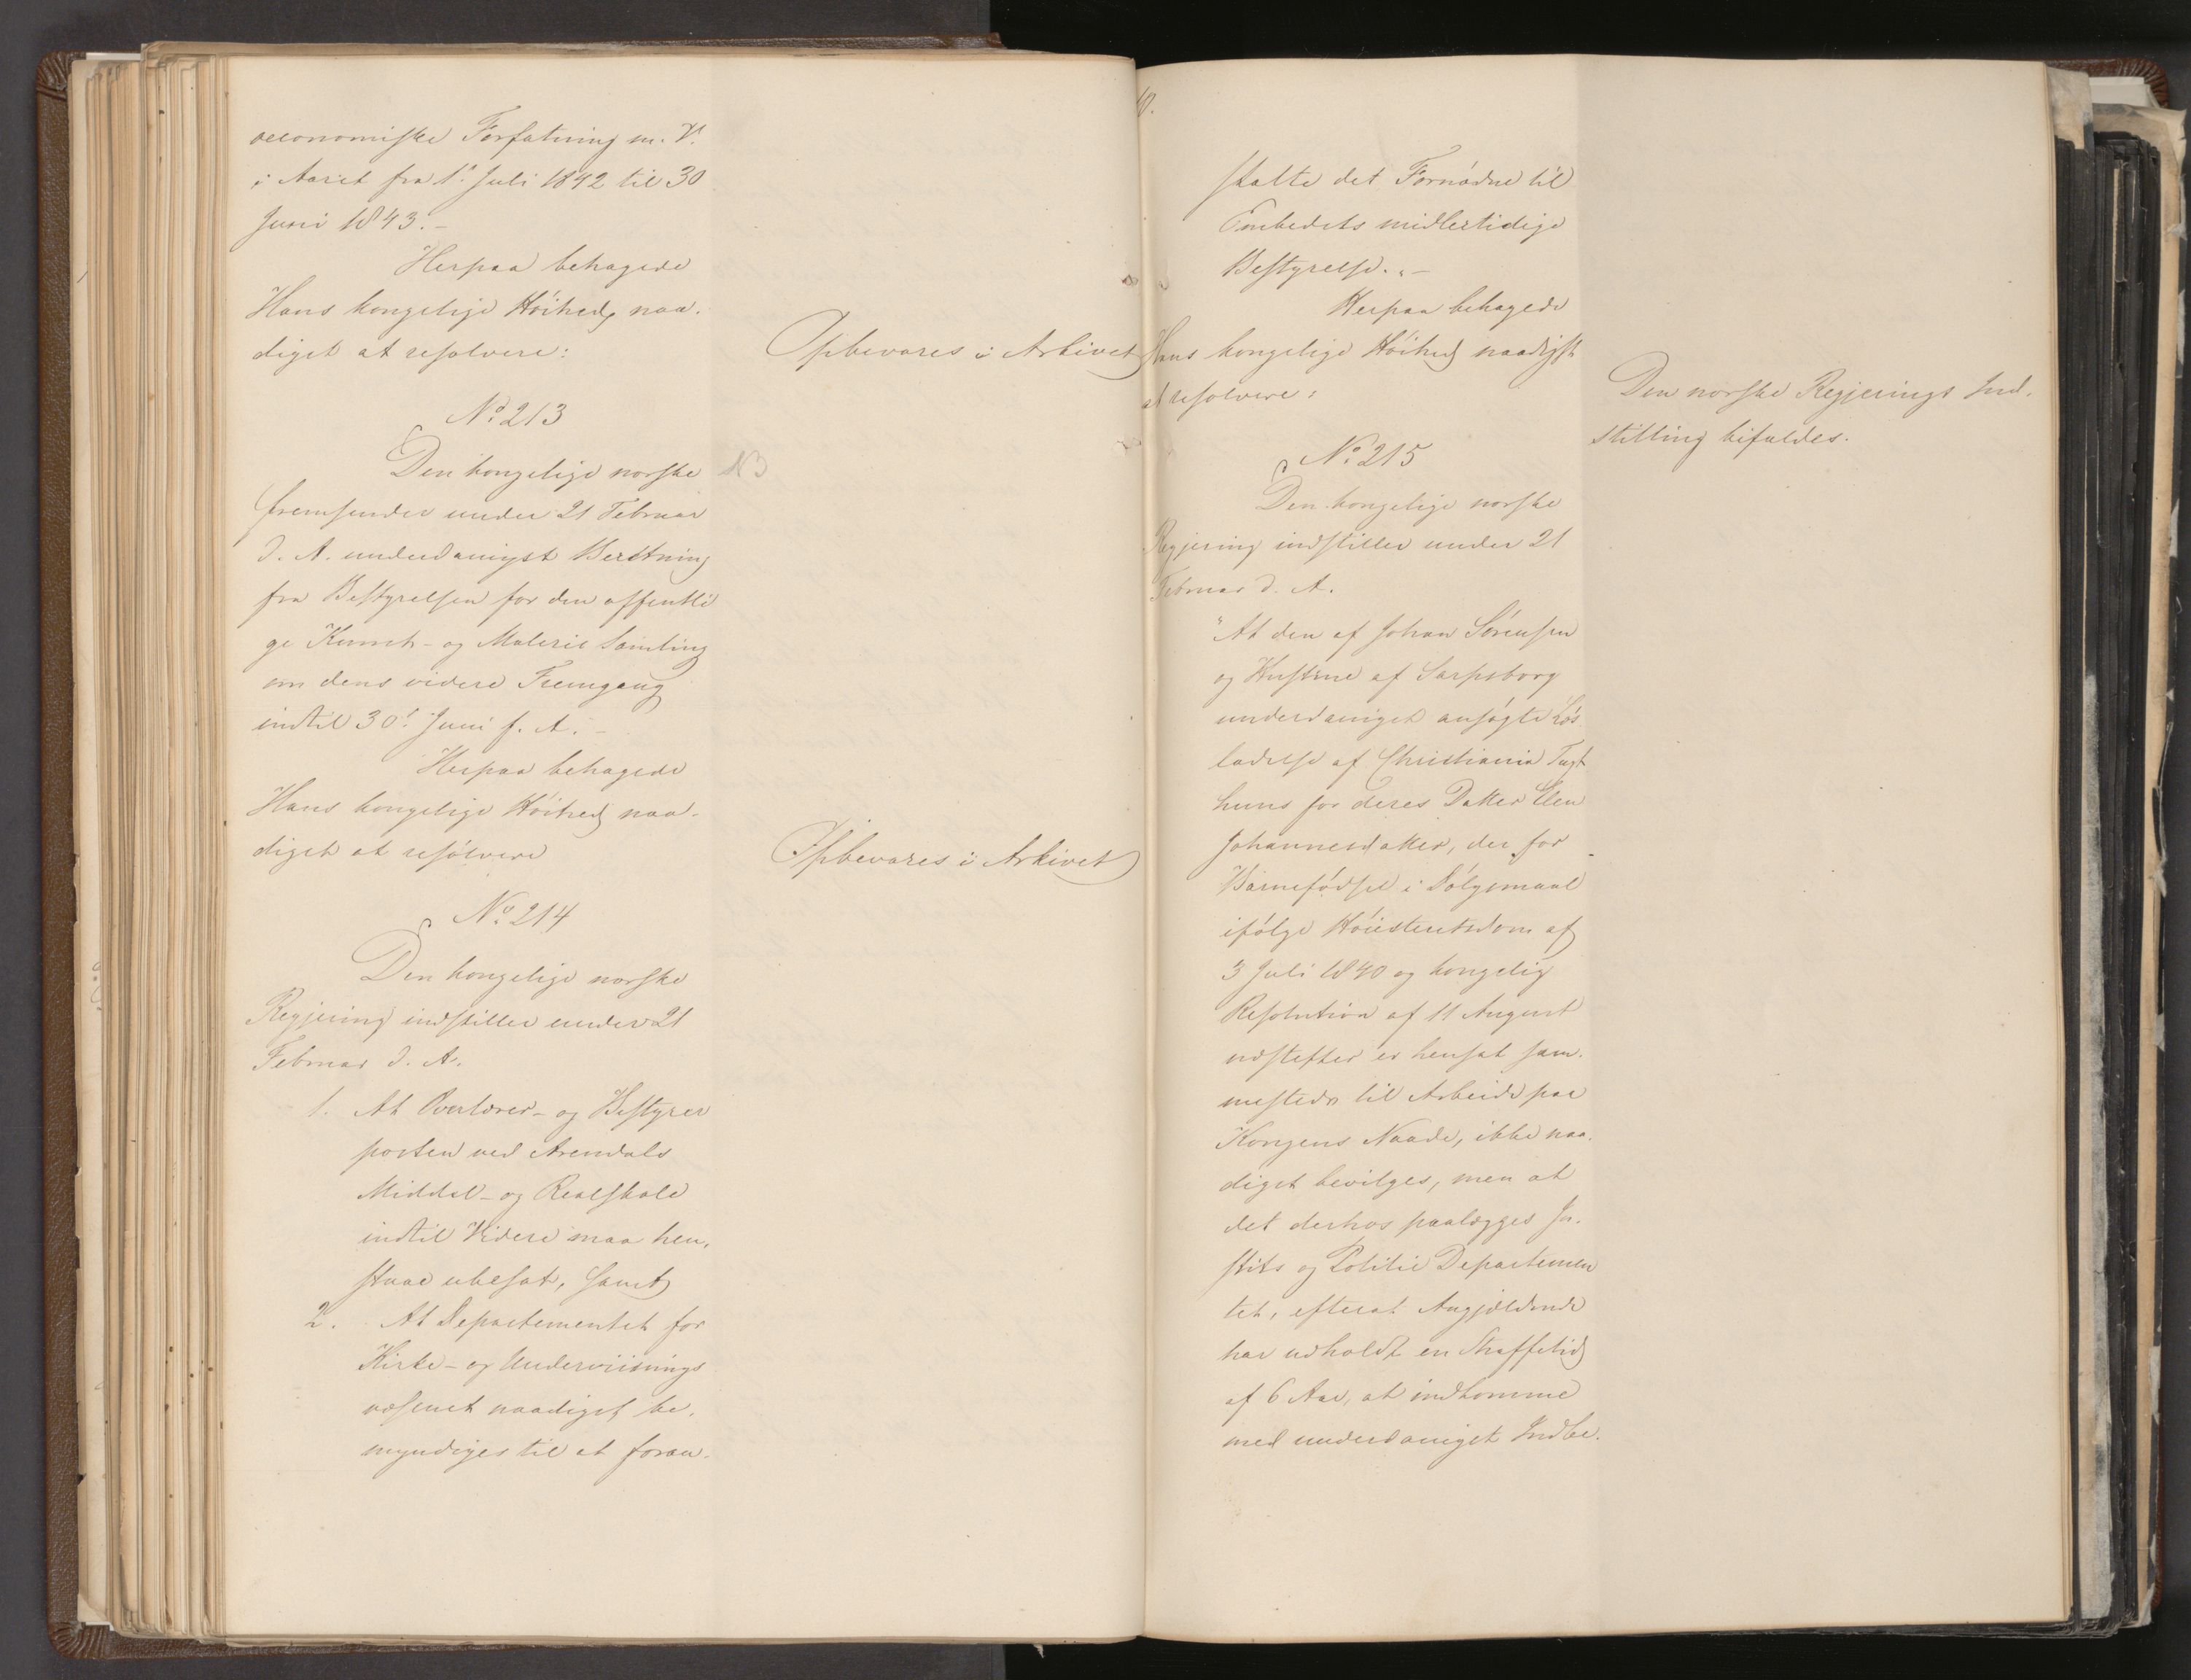 oeconomiske Forfatning m. V.
i Aaret fra 1ste Juli 1842 til 30
Juni 1843.-
Herpaa behagede
Hans kongelige Høihed naa-
digst at resolvere:
Opbevares i Arkivet
No 213
Den kongelige norske
NB
fremsender under 21 Februar
d. A. underdanigst Beretning
fra Bestyrelsen for den offentli
ge Kunst- og Malerie Samling
om dens videre Fremgang
indtil 30te Juni f. A. -
Herpaa behagede
Hans kongelige Høihed naa-
digst at resolvere
Opbevares i Arkivet
No 214
Den kongelige norske
Regjering indstiller under 21
Februar d. A.
1. At Overlærer- og Bestyrer
posten ved Arendals
Middel- og Realskole
indtil Videre maa hen-
staae ubesat, samt
2. At Departementet for
Kirke- og Underviisnings
væsenet naadigst be-
myndiges til at foran-
stalte det Fornødne til
Embedets midlertidige
Bestyrelse." -
Herpaa behagede
Hans kongelige Høihed naadigst
at resolvere:
Den norske Regjerings Ind-
stilling bifaldes.
No 215
Den kongelige norske
Regjering indstiller under 21
Februar d. A.
"At den af Johan Sørensen
og Hustrue af Sarpsborg
underdanigst ansøgte Løs
ladelse af Christiania Tugt
huus for deres Datter Elen
Johannesdatter, der for
Barnefødsel i Dølgsmaal
ifølge Høiesteretsdom af
3 Juli 1840 og kongelig
Resolution af 11 August
næstefter er hensat sam-
mesteds til Arbeide paa
Kongens Naade, ikke naa-
digst bevilges, men at
det derhos paalægges Ju-
stits og Politie Departemen
tet, efterat Angjældende
har udholdt en Straffetid
af 6 Aar, at indkomme
med underdanigst Indbe-